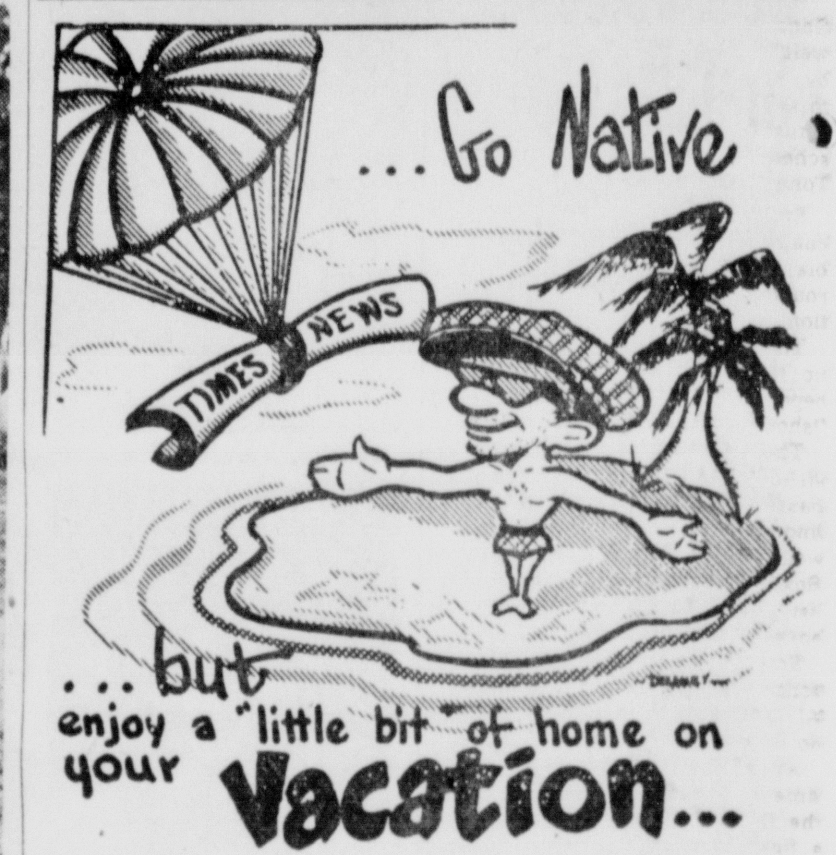 ...Go Native
TIMES NEWS
...but
enjoy a "little bit" of home on
your Vacation...